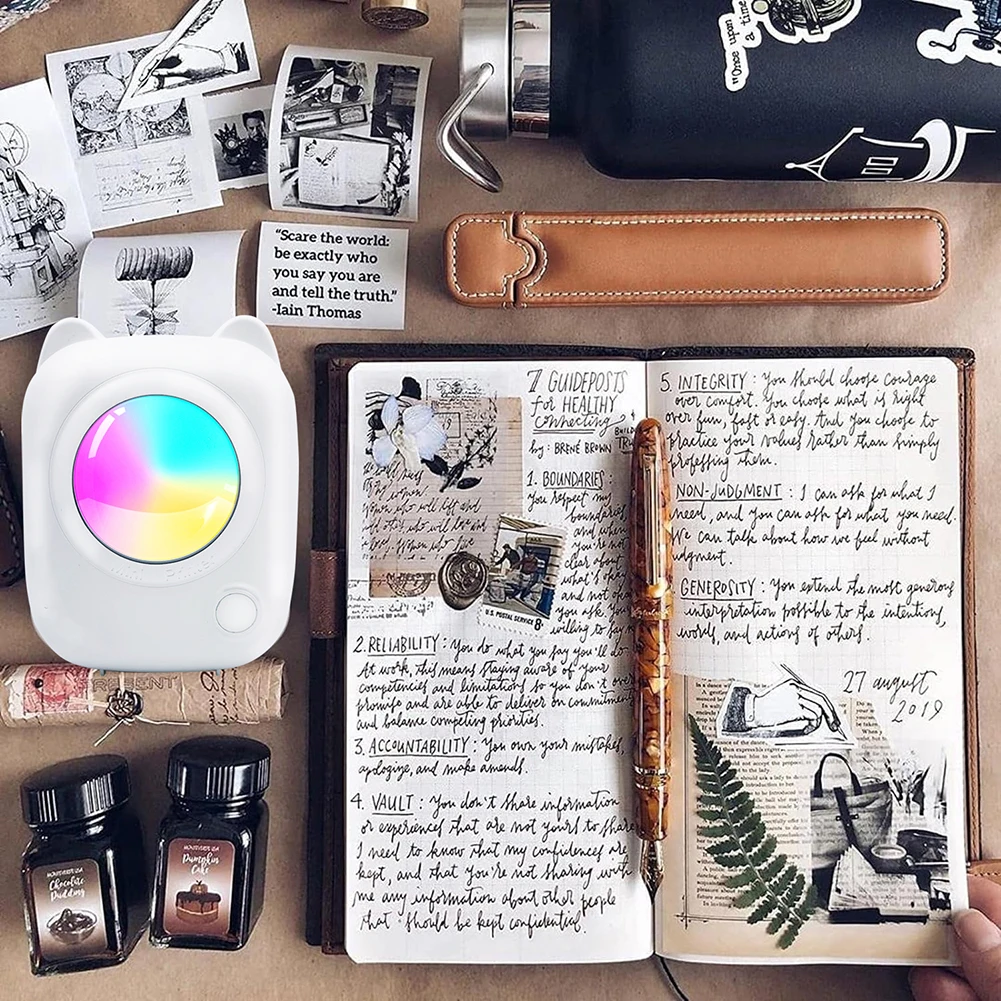 "Once upon
a time"
"Scare the world:
be exactly who
you say you are
and tell the truth."
-Iain Thomas
7 GUIDEPOSTS
for HEALTHY
Connecting
by: BRENÉ BROWN
1. BOUNDARIES:
You respect my
boundaries
and when
you're not
clear about
what's okay
and not
you ask. You
willing to say
U.S. POSTAL SERVICE 8¢
2. RELIABILITY: You do what you say you'll do.
At work, this means staying aware of your
competencies and limitations so you don't over
promise and are able to deliver on commitments
and balance competing priorities.
3. ACCOUNTABILITY: You own your mistakes,
apologize, and make amends.
4. VAULT: You don't share information
or experiences that are not yours to share.
I need to know that my confidences are
kept, and that you're not sharing with
me any information about other people
that should be kept confidential.
5. INTEGRITY: You should choose courage
over comfort. You choose what is right
over fun, fast or easy. And you choose to
practice your values rather than simply
professing them.
NON-JUDGMENT: I can ask for what I
need, and you can ask for what you need.
We can talk about how we feel without
judgment.
GENEROSITY: You extend the most generous
interpretation possible to the intentions,
words, and actions of others.
27 august
2019
Chocolate
Pudding
Pumpkin
Cake